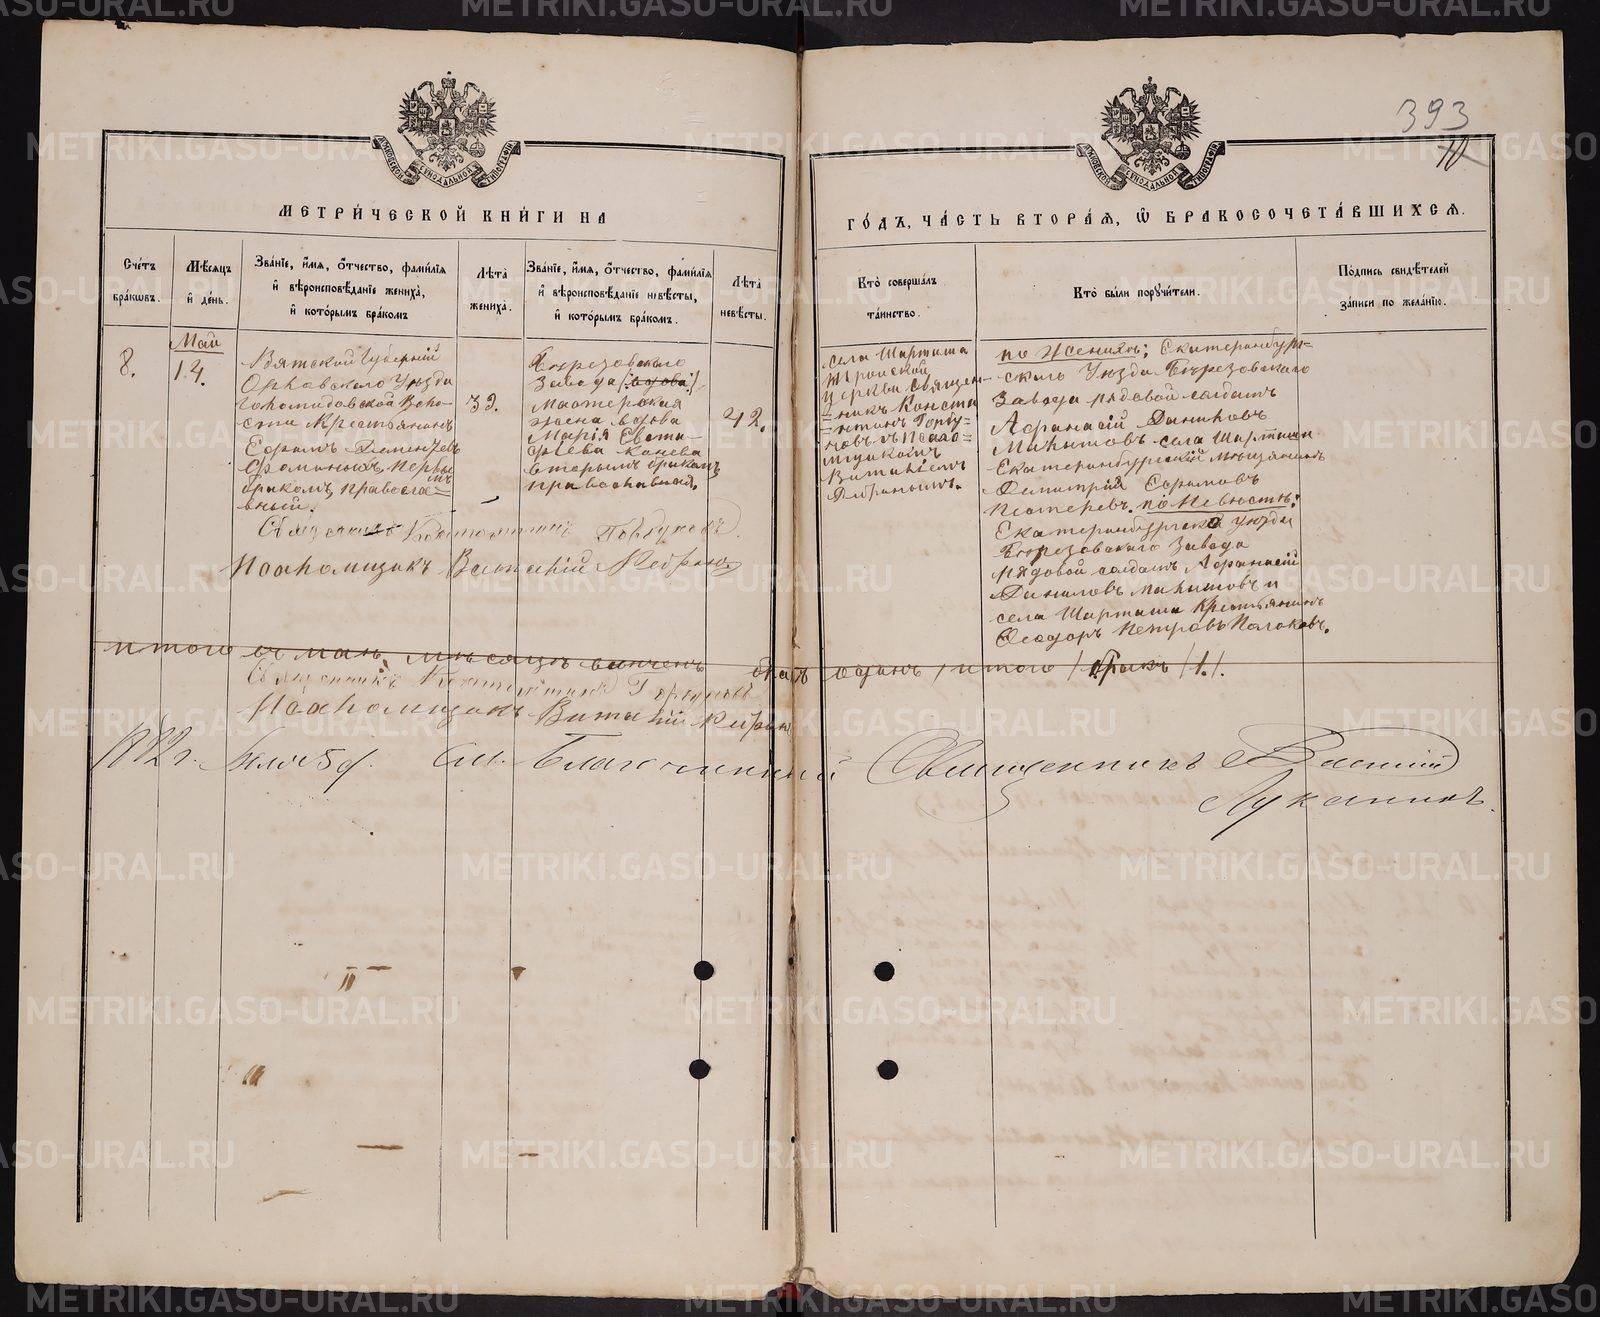 393
10
МЕТРИЧЕСКОЙ КНИГИ НА
ГОДЪ, ЧАСТЬ ВТОРАЯ, Ѿ БРАКОСОЧЕТАВШИХСЯ.
Счетъ браковъ.
Мѣсяцъ и день.
Званіе, имя, отчество, фамилія и вѣроисповѣданіе жениха, и которымъ бракомъ
Лѣта жениха.
Званіе, имя, отчество, фамилія и вѣроисповѣданіе невѣсты, и которымъ бракомъ.
Лѣта невѣсты.
Кто совершалъ таинство.
Кто были поручители.
Подпись свидѣтелей записи по желанію.
8.
Май
14.
Вятской Губерніи
Орловскаго Уѣзда
Воло=
сти Крестьянинъ
Ефремъ
Фоминыхъ, первы
мъ
бракомъ, Правосла=
вный.
32.
Березовскаго
Завода
Мастерская
жена вдова
Марія Евста-
фіева Конева
вторымъ бракомъ
православная.
42.
села Шарташа
Троицкой
Церкви Священ-
=никъ Конста
=нтинъ Горбу=
новъ съ Псало=
мщикомъ
Виталіемъ
по Женихѣ: Екатеринбург=
скаго Уѣзда Березовскаго
Завода рядовой солдатъ
Афанасій Даниловъ
села Шарташа
Екатеринбургскій мѣщанинъ
Димитрій Ефремовъ
по Невѣстѣ:
Екатеринбургскаго уѣзда
Березовскаго Завода
рядовой солдатъ Афанасій
Даниловъ и
села Шарташа Крестьянинъ
Ѳеодоръ Петровъ
Священникъ Константинъ Горбуновъ.
Псаломщикъ Виталій
итого въ маѣ мѣсяцѣ вѣнчанъ бракъ одинъ /итого/ бракъ /1./.
Священникъ Константинъ Горбуновъ
Псаломщикъ Виталій
1882 г. Благочинный Священникъ Василій
Лукановъ.
METRIKI.GASO-URAL.RU